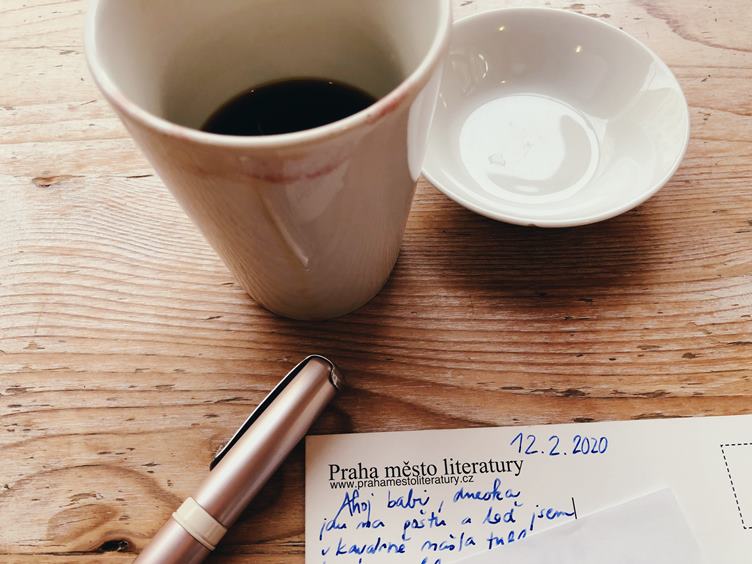 12.2.2020
Praha město literatury
www.prahamestoliteratury.cz
Ahoj babi, dneska
jdu na poštu a teď jsem
v kavárně našla